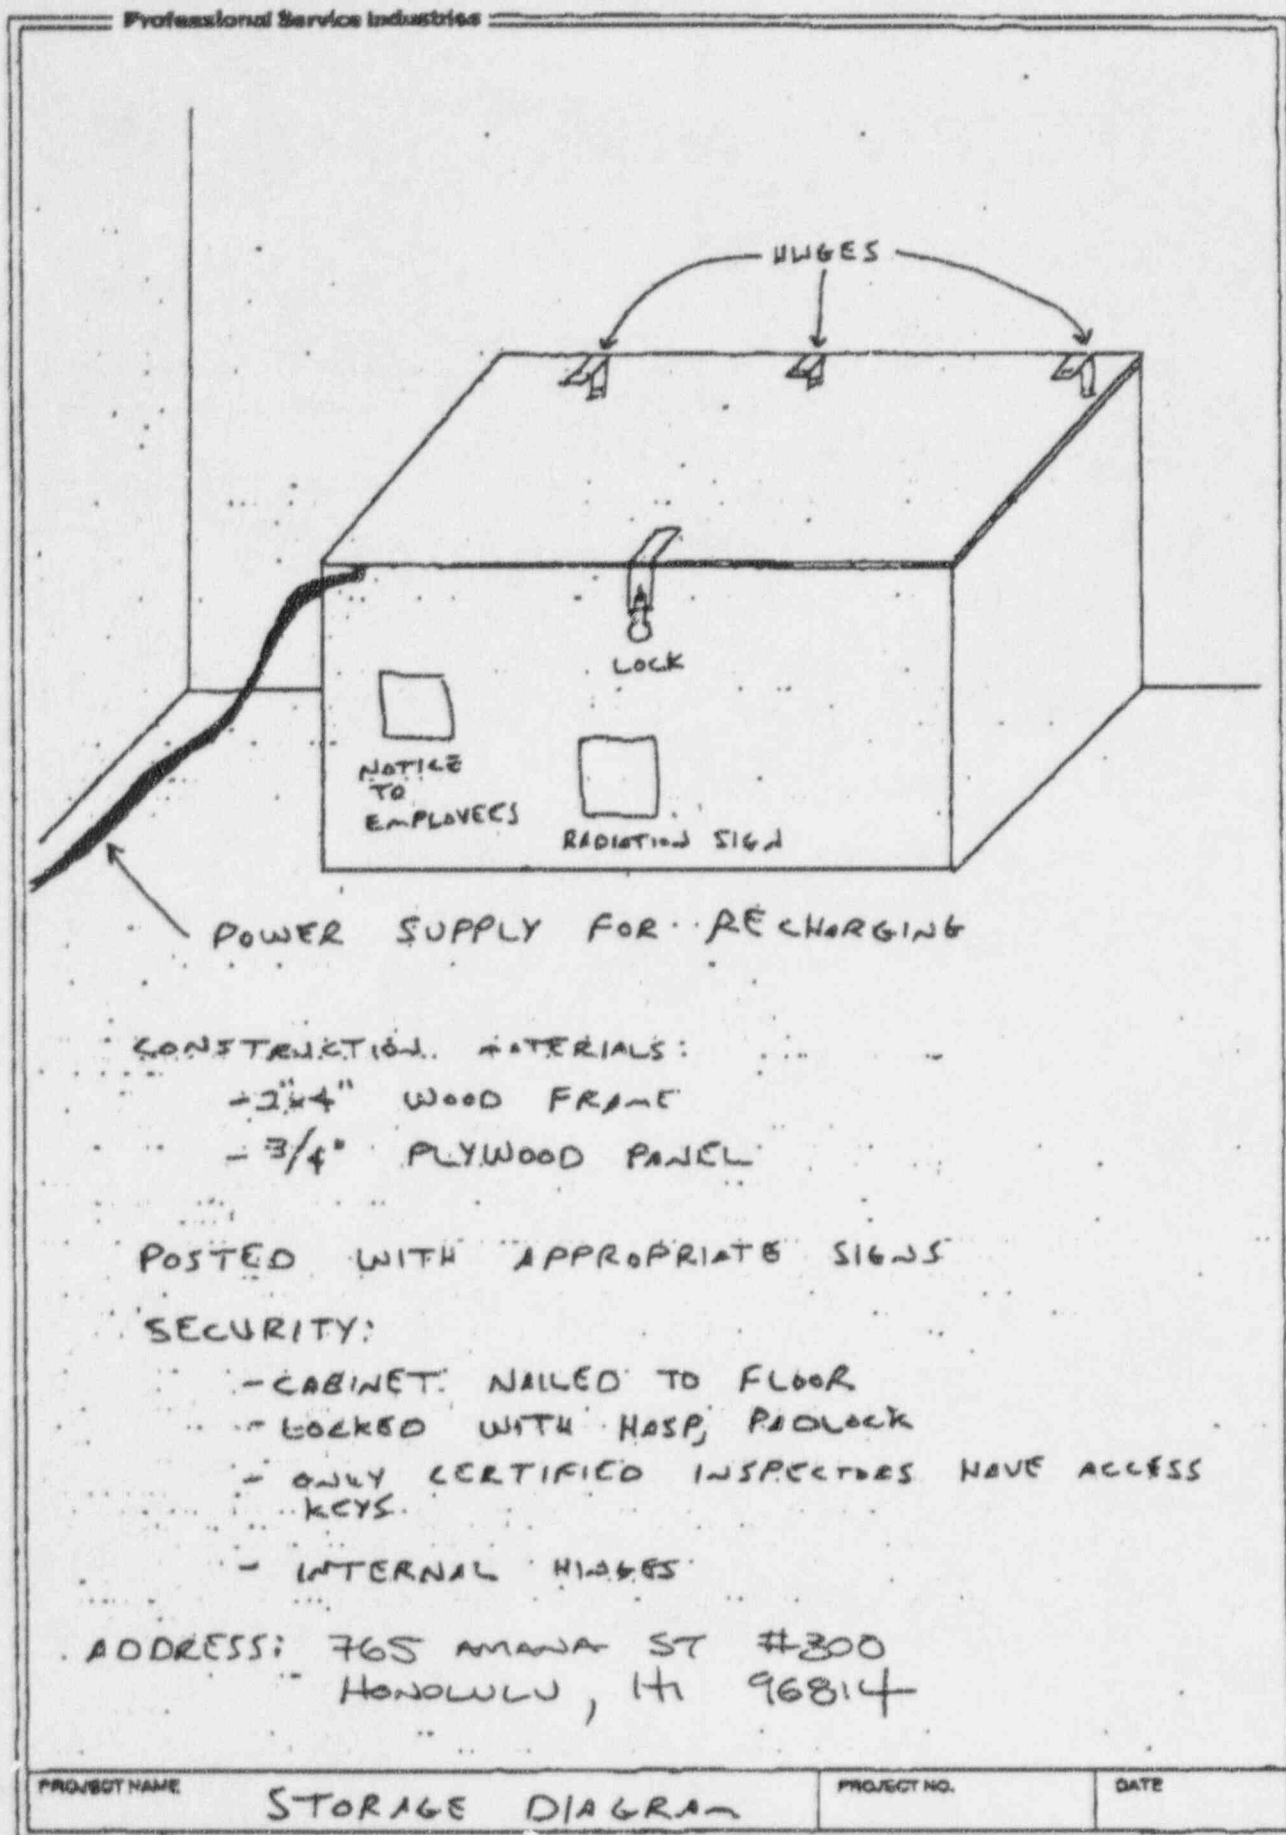 Professional Service Industries
HINGES
LOCK
NOTICE
TO
EMPLOYEES
RADIATION SIGN
POWER SUPPLY FOR RECHARGING
CONSTRUCTION MATERIALS:
- 2"x4" WOOD FRAME
- 3/4" PLYWOOD PANEL
POSTED WITH APPROPRIATE SIGNS
SECURITY:
- CABINET NAILED TO FLOOR
- LOCKED WITH HASP, PADLOCK
- ONLY CERTIFIED INSPECTORS HAVE ACCESS
KEYS.
- INTERNAL HINGES
ADDRESS: 765 AMANA ST #300
HONOLULU, HI 96814
PROJECT NAME STORAGE DIAGRAM PROJECT NO. DATE